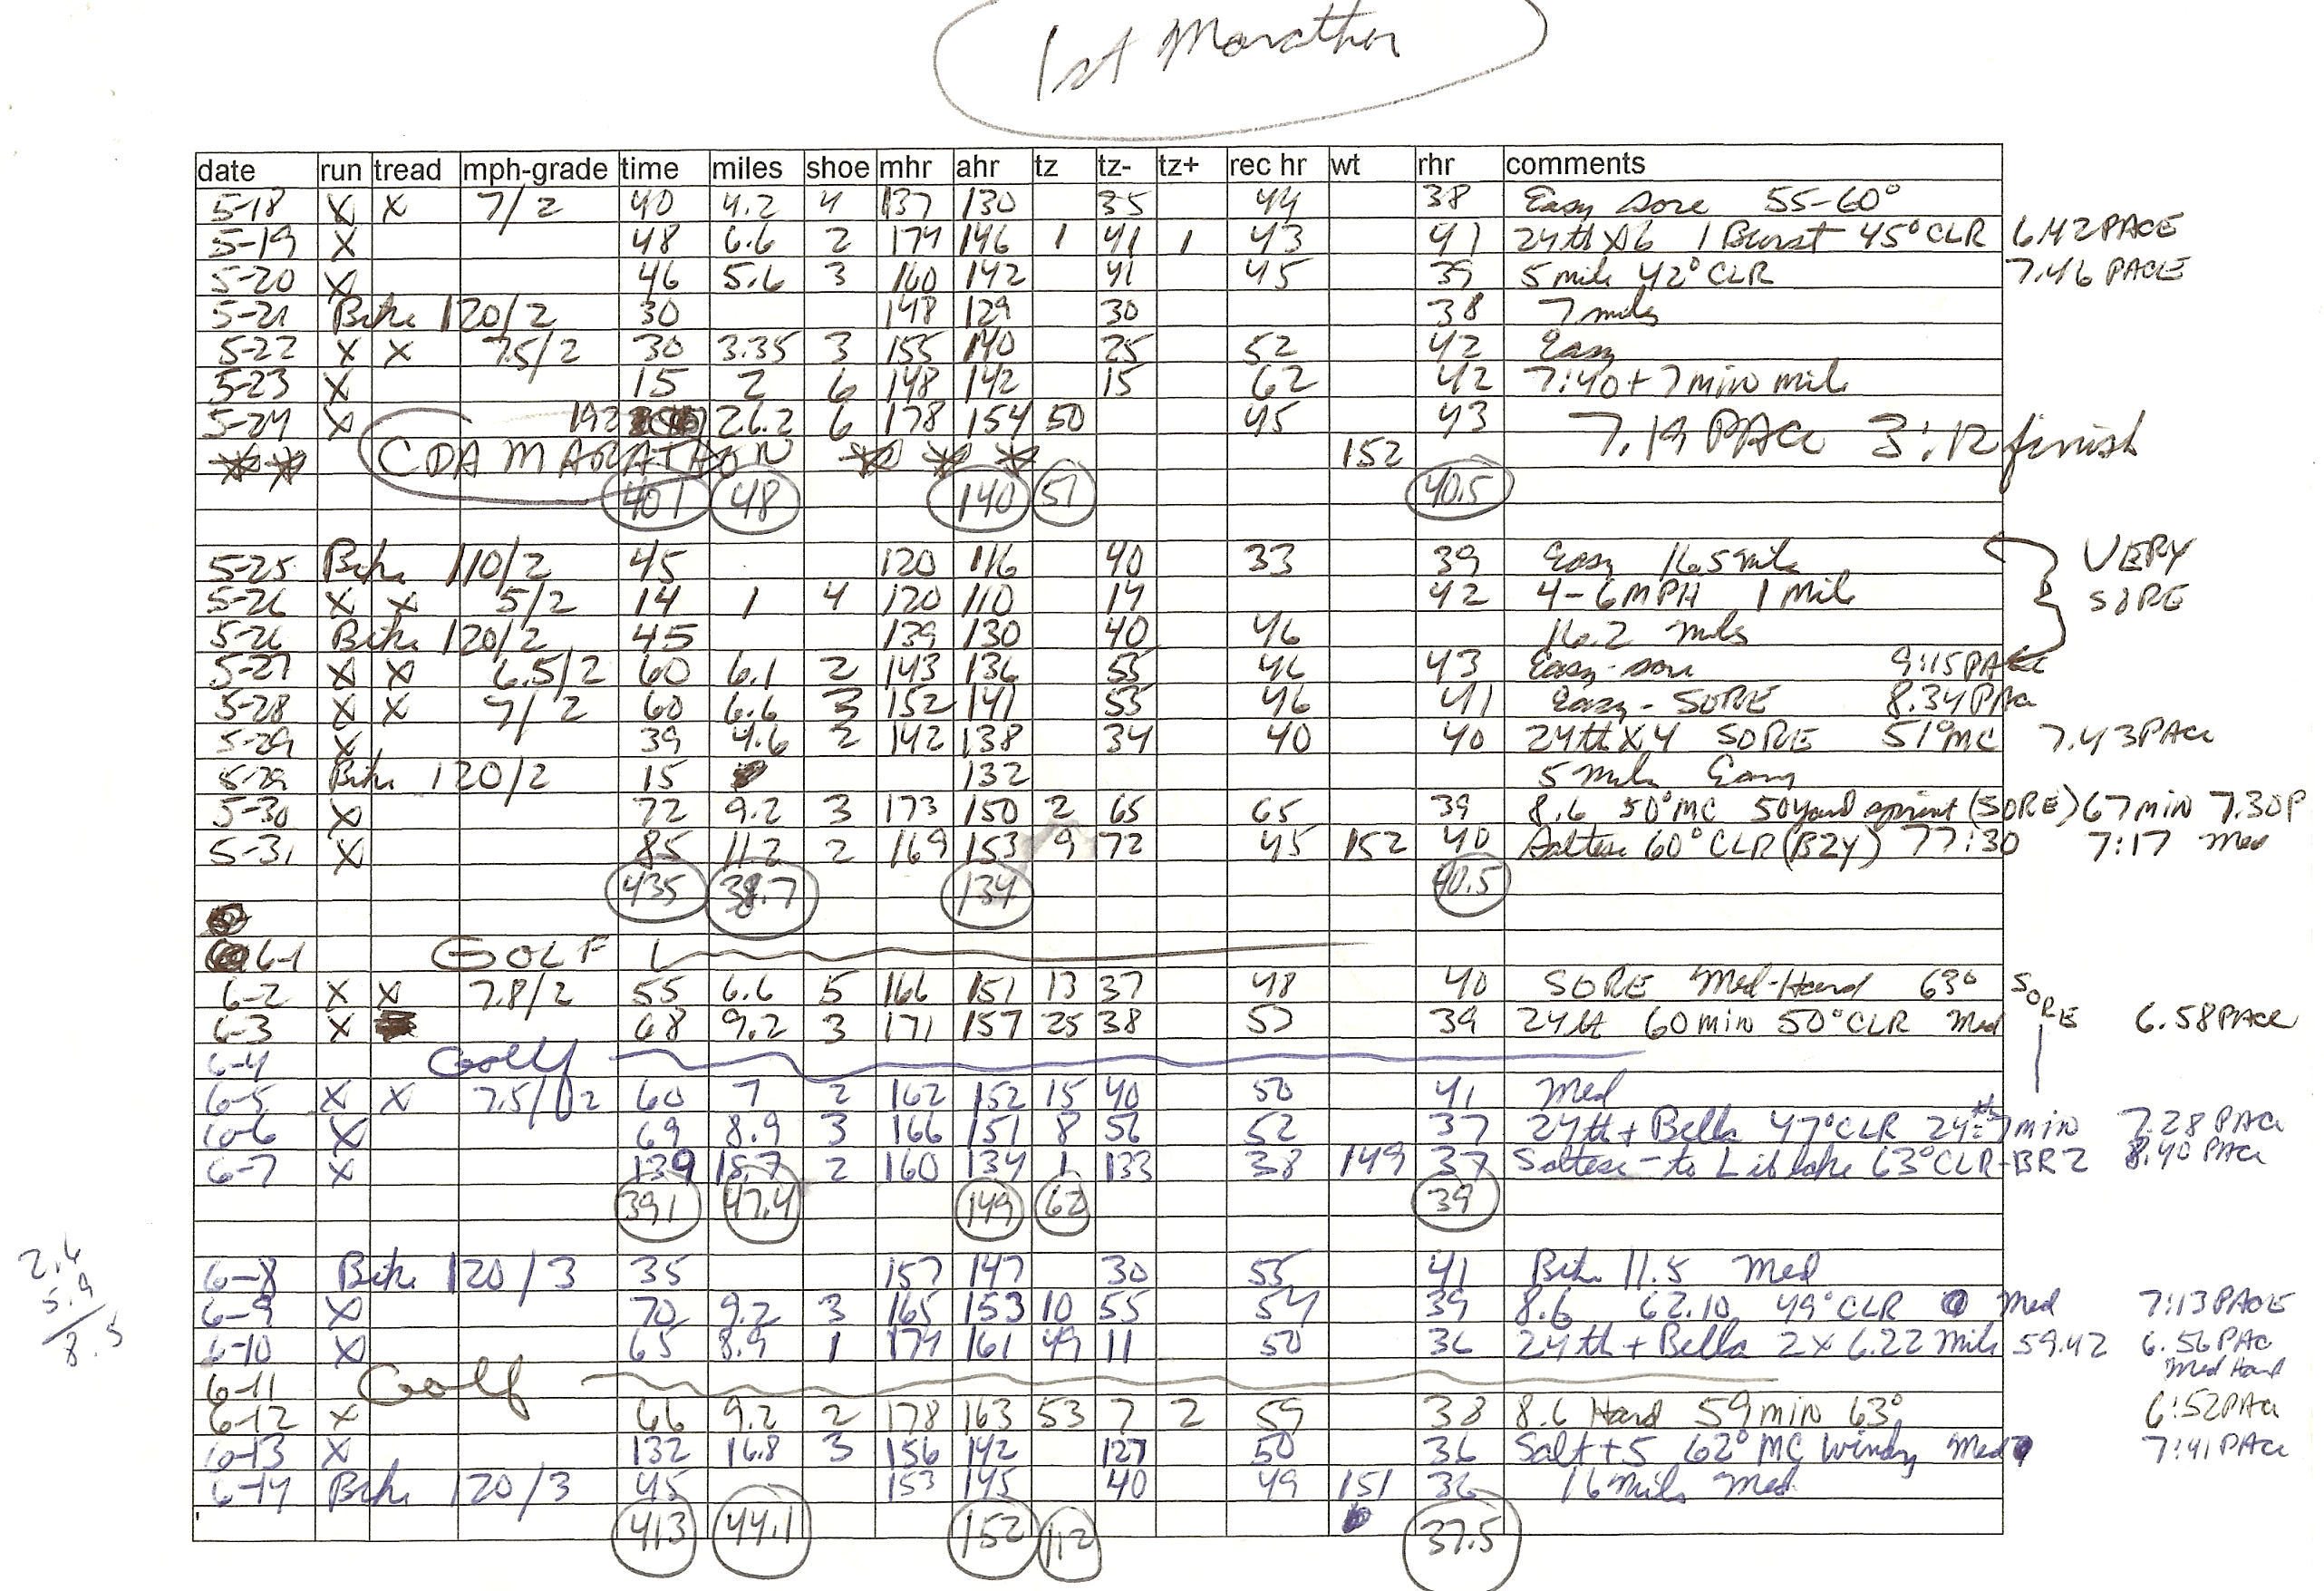 1st Marathon
date run tread mph-grade time miles shoe mhr ahr tz tz- tz+ rec hr wt rhr comments
5-18 X X 7/2 40 4.2 4 137 130 35 44 38 Easy sore 55-60°
5-19 X 48 6.6 2 174 146 1 41 1 43 41 24th X6 1 Burst 45° CLR 6.42 PACE
5-20 X 46 5.6 3 160 142 41 45 39 5 mile 42° CLR 7.46 PACE
5-21 Bike 120/2 30 148 129 30 38 7 miles
5-22 X X 7.5/2 30 3.35 3 155 140 25 52 42 Easy
5-23 X 15 2 6 148 142 15 62 42 7:40+7 min mile
5-24 X 192 26.2 6 178 154 50 45 43 7.19 PACE 3:12 finish
CDA MARATHON 152
401 48 140 51 40.5
5-25 Bike 110/2 45 120 116 40 33 39 Easy 16.5 mile VERY
5-26 X X 5/2 14 1 4 120 110 14 42 4-6 MPH 1 Mile SORE
5-26 Bike 120/2 45 139 130 40 46 16.2 miles
5-27 X X 6.5/2 60 6.1 2 143 136 55 46 43 Easy-sore 9:15 PACE
5-28 X X 7/2 60 6.6 3 152 141 55 46 41 Easy-SORE 8.34 PACE
5-29 X 39 4.6 2 142 138 34 40 40 24th X4 SORE 51° MC 7.43 PACE
5-29 Bike 120/2 15 132 5 mile Easy
5-30 X 72 9.2 3 173 150 2 65 65 39 8.6 50° MC 50 yard sprint (SORE) 67 min 7.30 P
5-31 X 85 11.2 2 169 153 9 72 45 152 40 Saltese 60° CLR (BZY) 77:30 7:17 Med
435 38.7 134 40.5
6-1 GOLF
6-2 X X 7.8/2 55 6.6 5 166 151 13 37 48 40 SORE Med-Hard 63° SORE
6-3 X 68 9.2 3 171 157 25 38 57 39 24th 60 min 50° CLR Med 6.58 PACE
6-4 Golf
6-5 X X 7.5/2 60 7 2 162 152 15 40 50 41 Med
6-6 X 69 8.9 3 166 151 8 56 52 37 24th + Bella 47° CLR 24th 7 min 7.28 PACE
6-7 X 139 15.7 2 160 134 1 133 38 149 37 Saltese - to Lib lake 63° CLR-BRZ 8.40 PACE
391 47.4 149 62 39
2.6
5.9
8.5
6-8 Bike 120/3 35 157 147 30 55 41 Bike 11.5 Med
6-9 X 70 9.2 3 165 153 10 55 54 39 8.6 62.10 49° CLR Med 7:13 PACE
6-10 X 65 8.9 1 174 161 49 11 50 36 24th + Bella 2x 6.22 Mile 59.42 6.56 PACE
Med Hard
6-11 Golf
6-12 X 66 9.2 2 178 163 53 7 2 59 38 8.6 Hard 59 min 63° 6:52 PACE
6-13 X 132 16.8 3 156 142 127 50 36 Salt+5 62° MC Windy Med 7:41 PACE
6-14 Bike 120/3 45 153 145 40 49 151 36 16 Miles Med
413 44.1 152 112 37.5